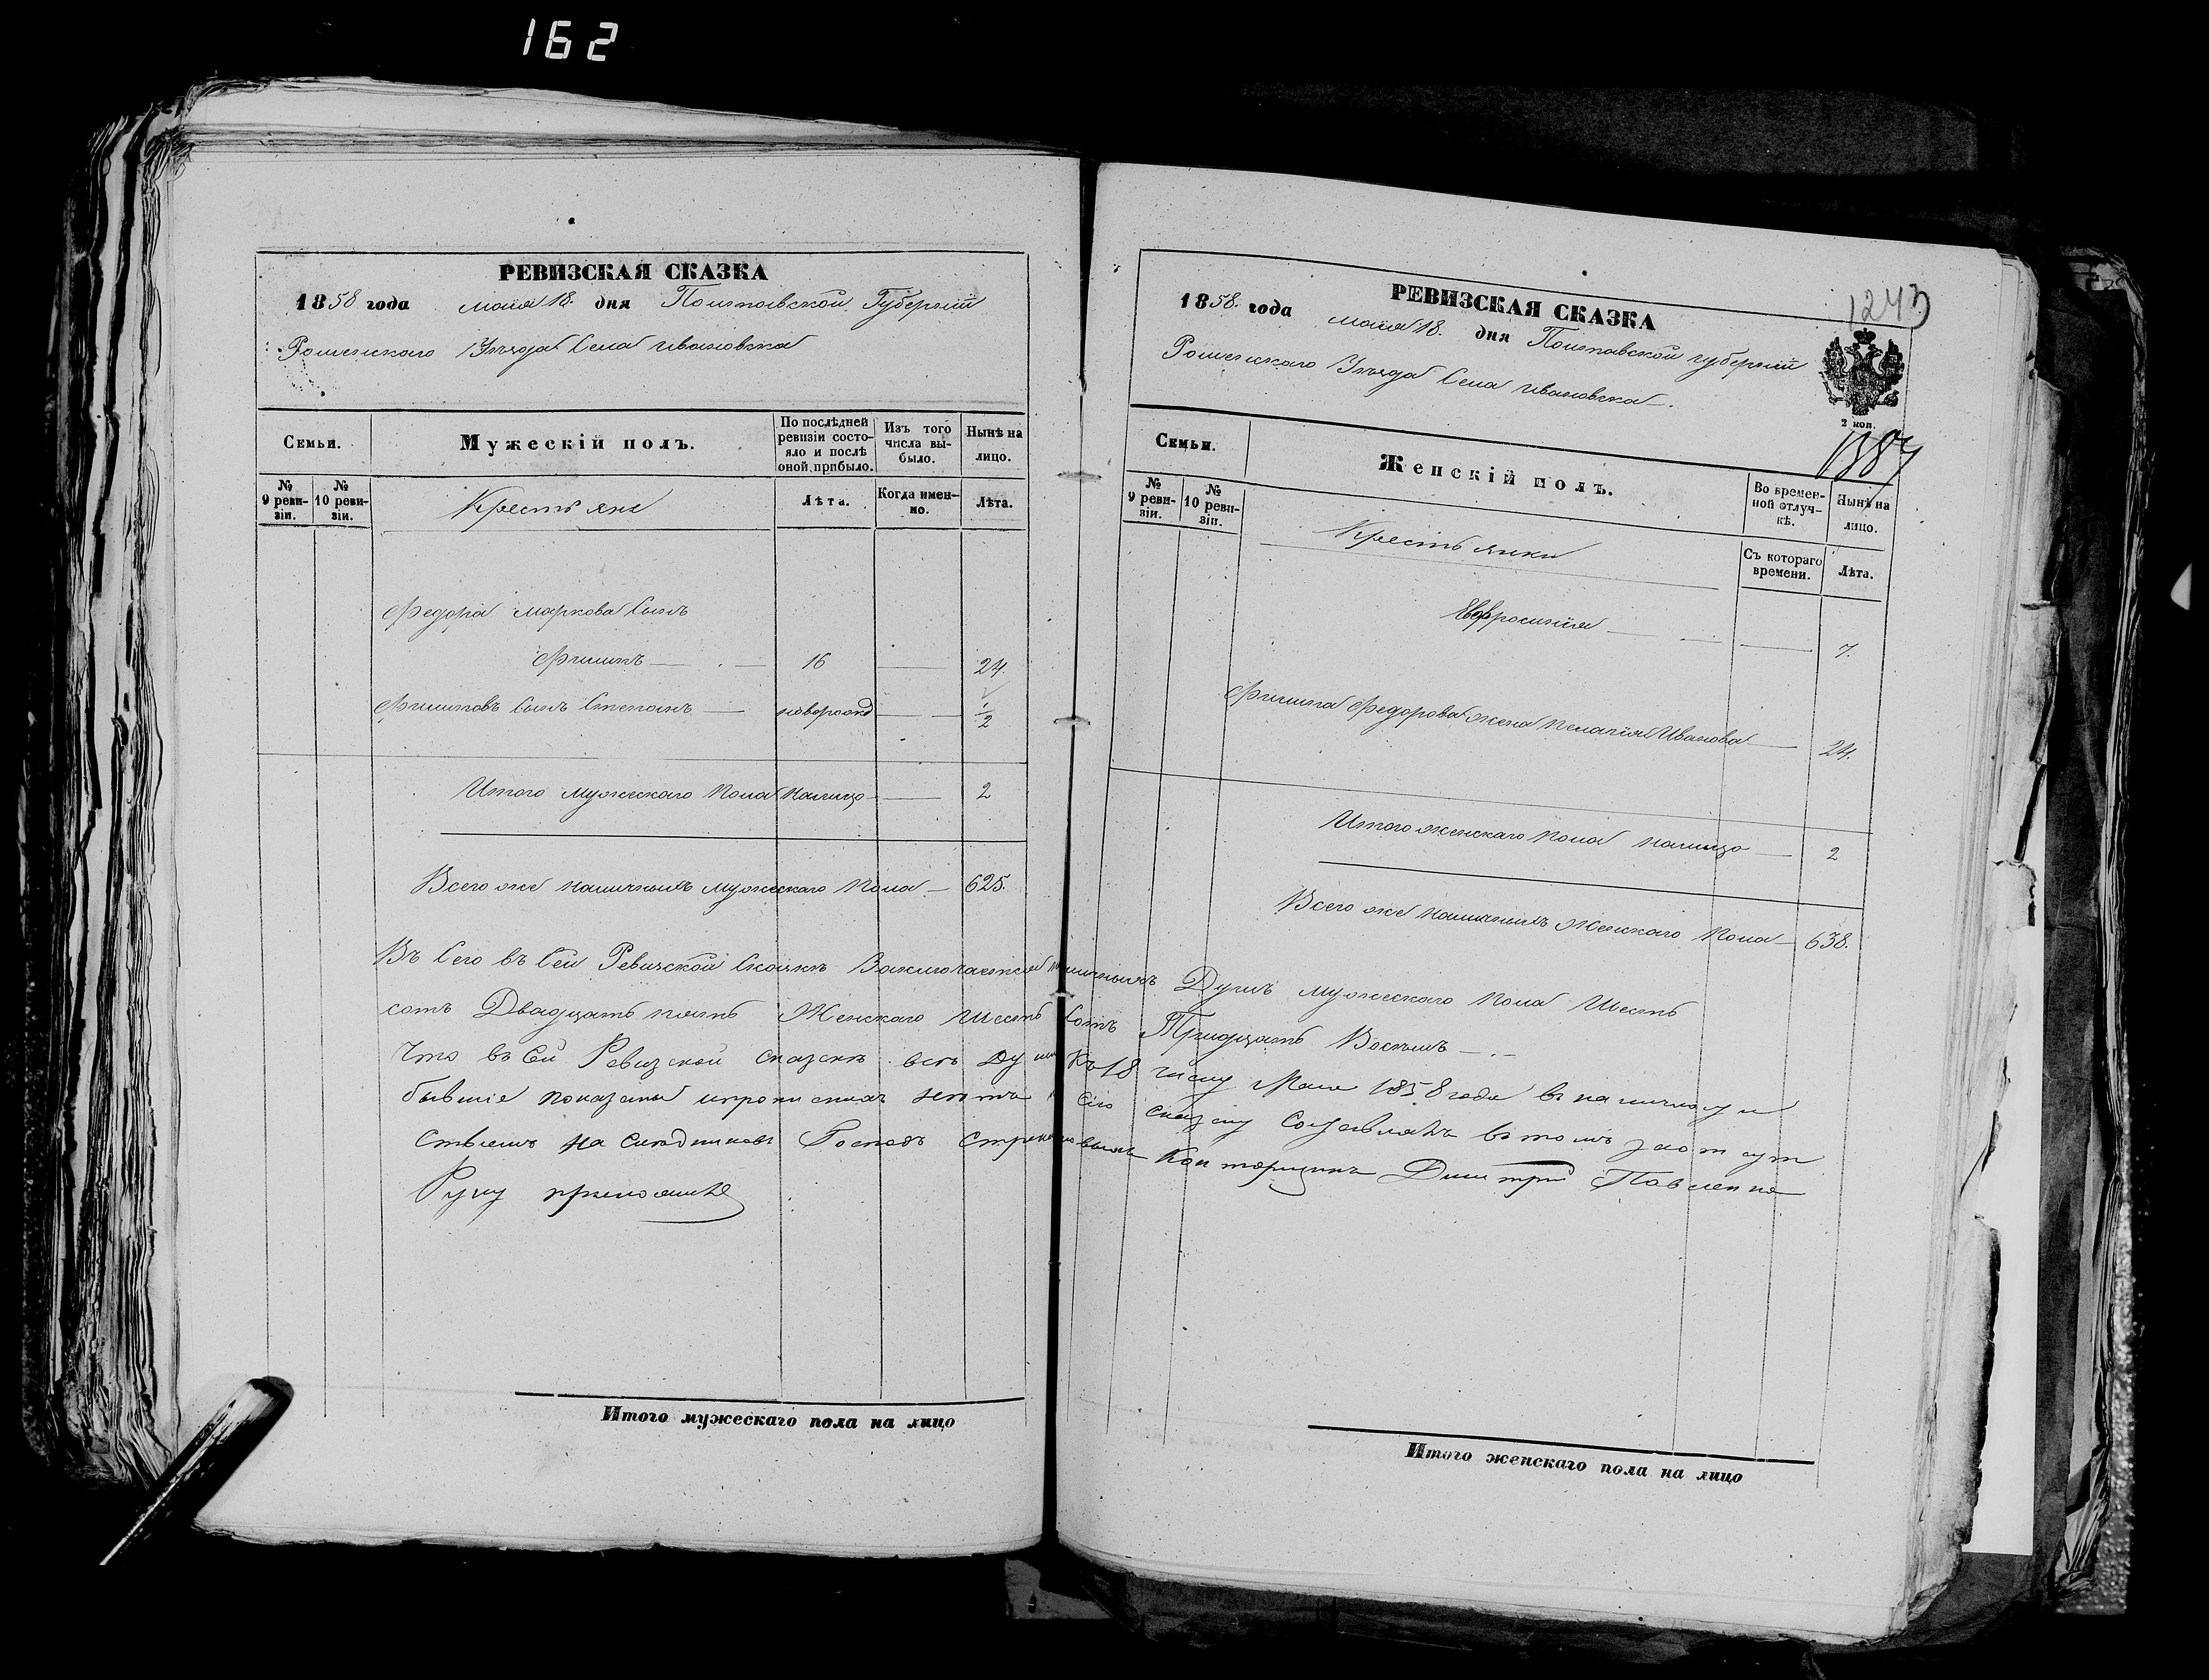 162
РЕВИЗСКАЯ СКАЗКА
1858 года маія 18. дня Полтавской Губерніи
Роменскаго Уѣзда Села Ивановка
Семьи.
Мужескій полъ.
По послѣдней ревизіи состояло и послѣ оной прибыло.
Изъ того числа выбыло.
Нынѣ на лицо.
№ 9 ревизіи.
№ 10 ревизіи.
Крестьяне
Лѣта.
Когда именно.
Лѣта.
Федора Маркова Сынъ
Филипъ 16 24.
Филиповъ Сынъ Степанъ новорожд 1/2
Итого мужескаго пола налицо 2
Всего же наличныхъ мужескаго пола 625.
РЕВИЗСКАЯ СКАЗКА
1243
1858. года маія 18. дня Полтавской губерніи
Роменскаго Уѣзда Села Ивановка.
2 коп.
1387
Семьи.
Женскій полъ.
Во временной отлучкѣ.
Нынѣ на лицо.
№ 9 ревизіи.
№ 10 ревизіи.
Крестьянки
Съ котораго времени.
Лѣта.
Евфросинія 7.
Филипа Федорова жена Пелагія Иванова 24.
Итого женскаго пола налицо 2
Всего же наличныхъ Женскаго пола 638.
Въ Сего въ Сей Ревизской Сказкѣ Заключается наличныхъ Душъ мужескаго пола Шесть
сотъ Двадцать пять Женскаго Шесть Сотъ Тридцать Восемъ
Что въ Сей Ревизской сказкѣ всѣ Души Къ 18 числу Мая 1858 года въ наличности
бывшіе показаны и прописныхъ нетъ Сію сказку Составлялъ въ томъ
на Контарщикъ Дмитрій Павленко
Руку приложилъ
Итого мужескаго пола на лицо
Итого женскаго пола на лицо